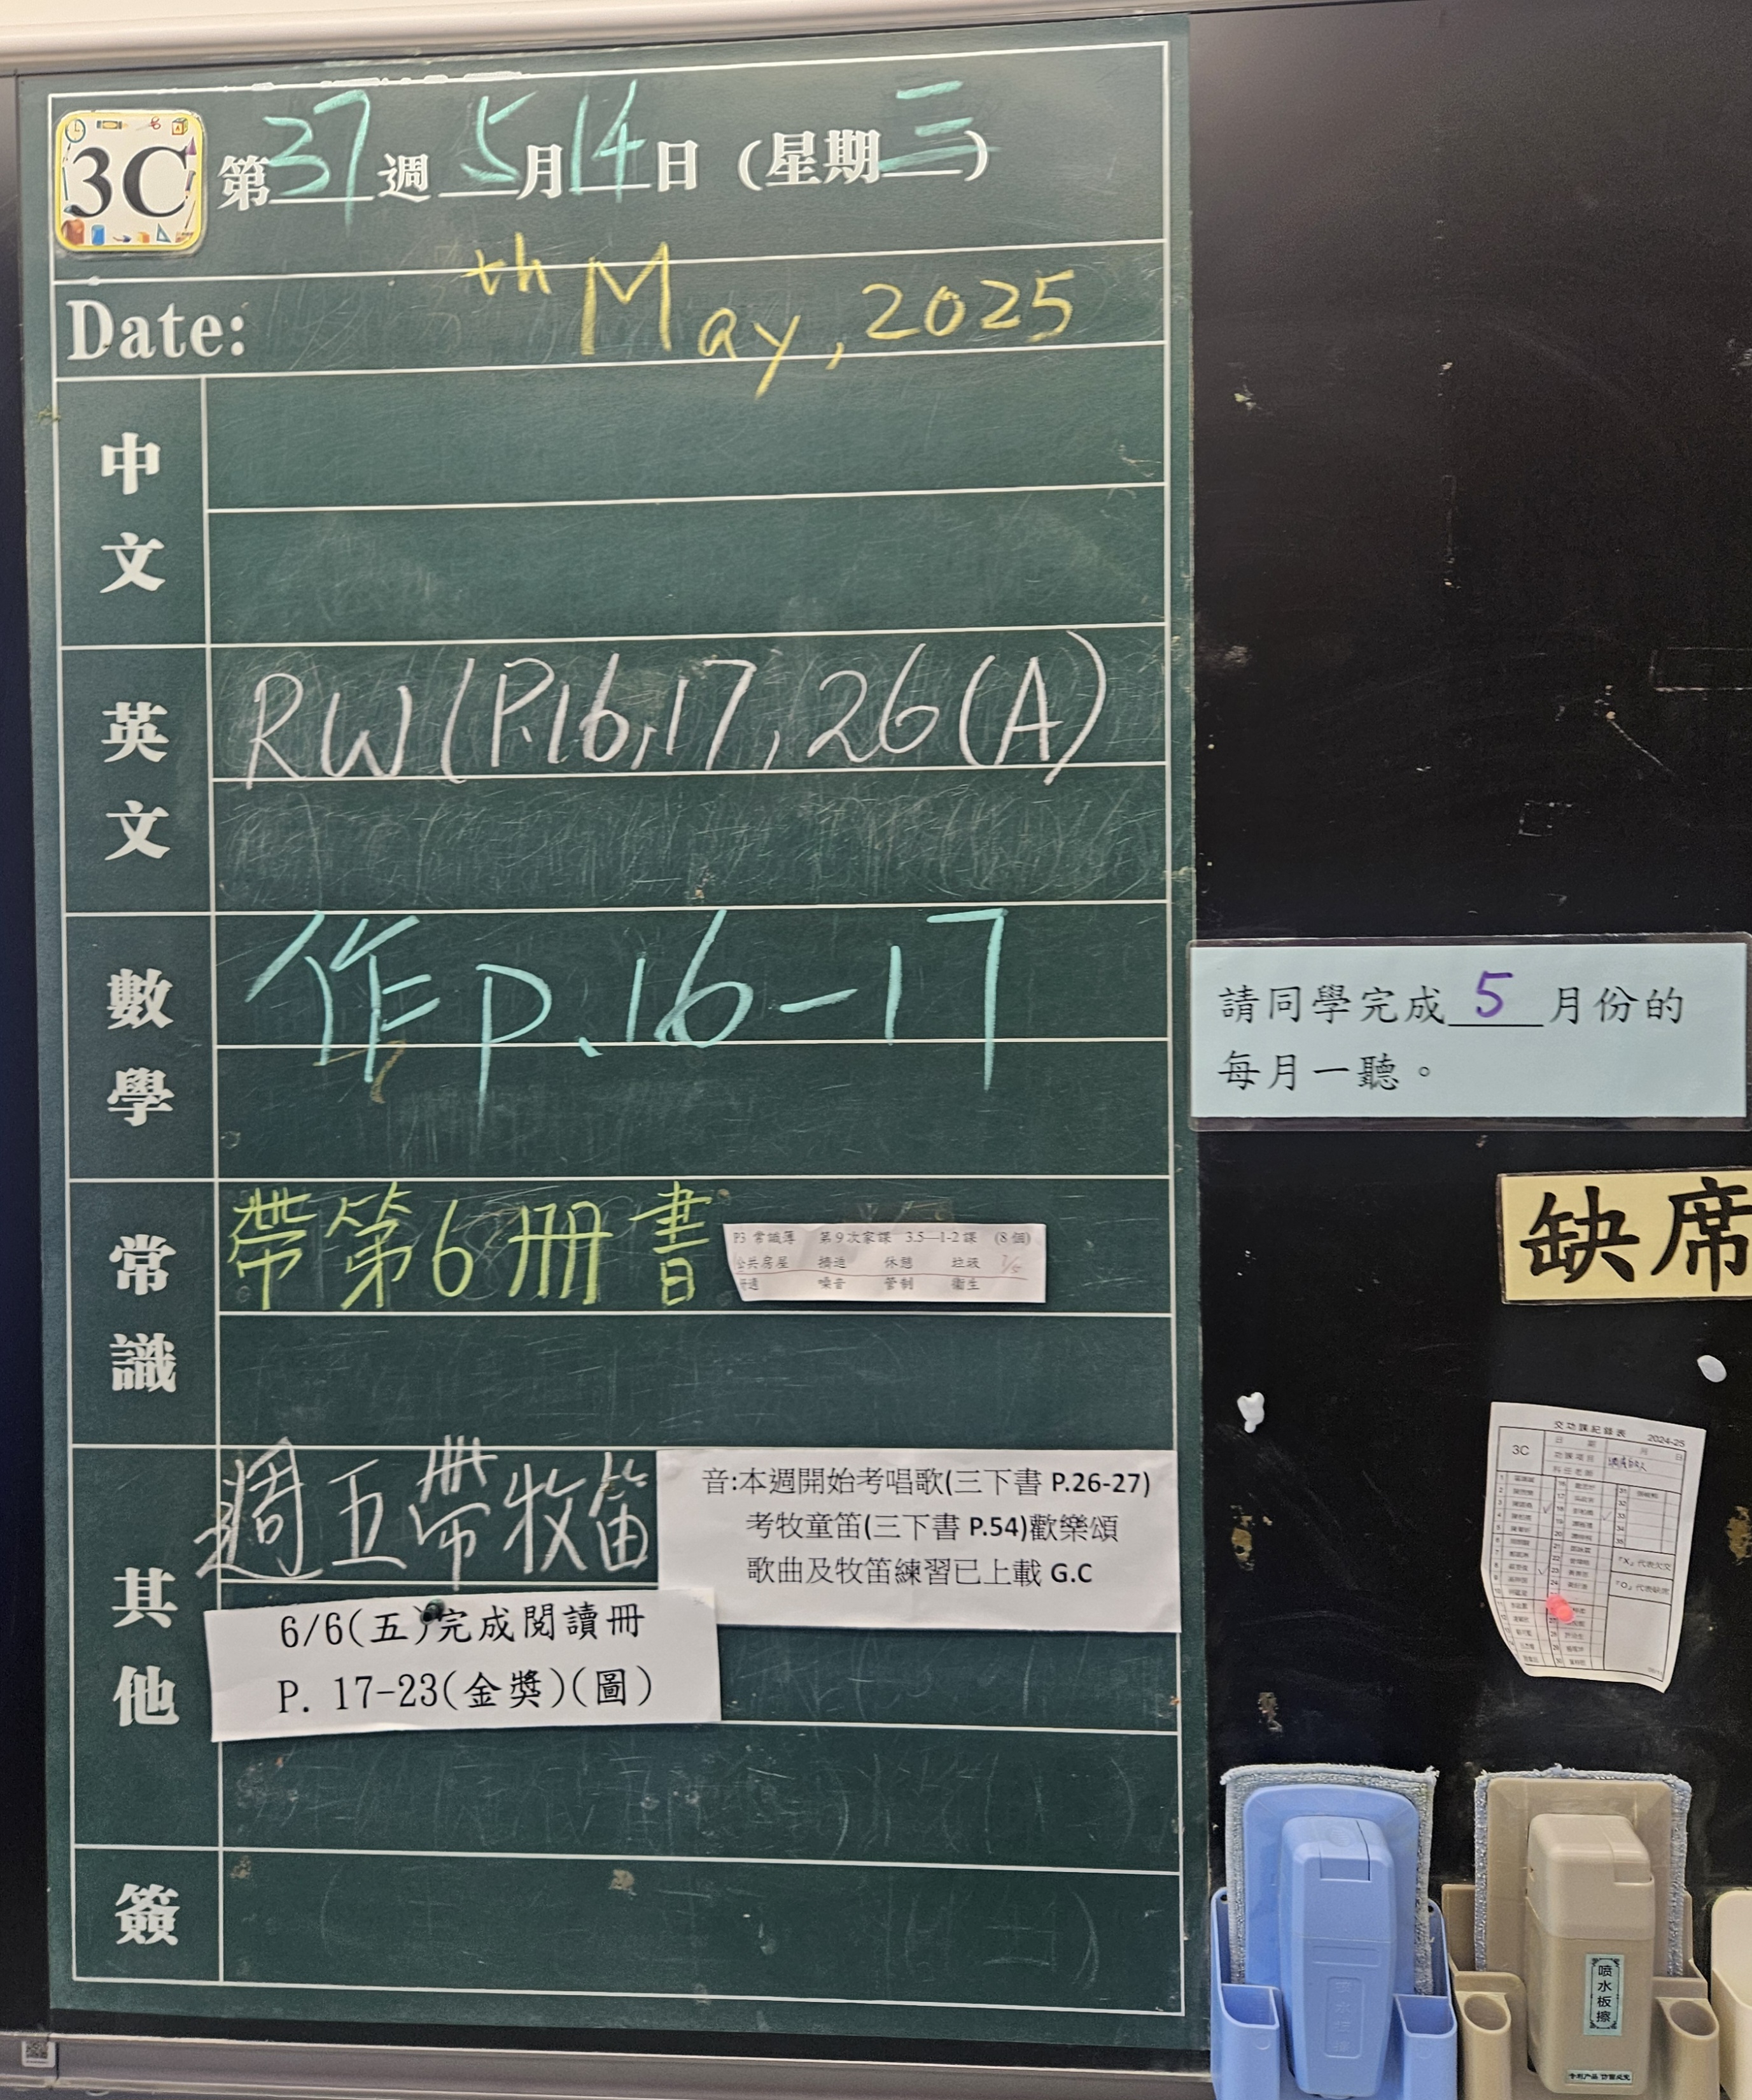 3C 第37週 5月14日 (星期三)
Date: th May, 2025
中文
英文
RW(P.16,17,26(A)
數學
作P.16-17
常識
帶第6冊書
P3 常識簿 第9次家課 3.5—1-2課 (8個)
公共房屋 擠迫 休憩 垃圾
噪音 管制 衞生
其他
週五帶牧笛
音:本週開始考唱歌(三下書 P.26-27)
考牧童笛(三下書 P.54)歡樂頌
歌曲及牧笛練習已上載 G.C
6/6(五)完成閱讀冊
P. 17-23(金獎)(圖)
簽
請同學完成 5 月份的
每月一聽。
缺席
交功課紀錄表 2024-25
3C
日期 月 日
功課項目
科任老師
「X」代表欠交
「O」代表缺席
喷水板擦